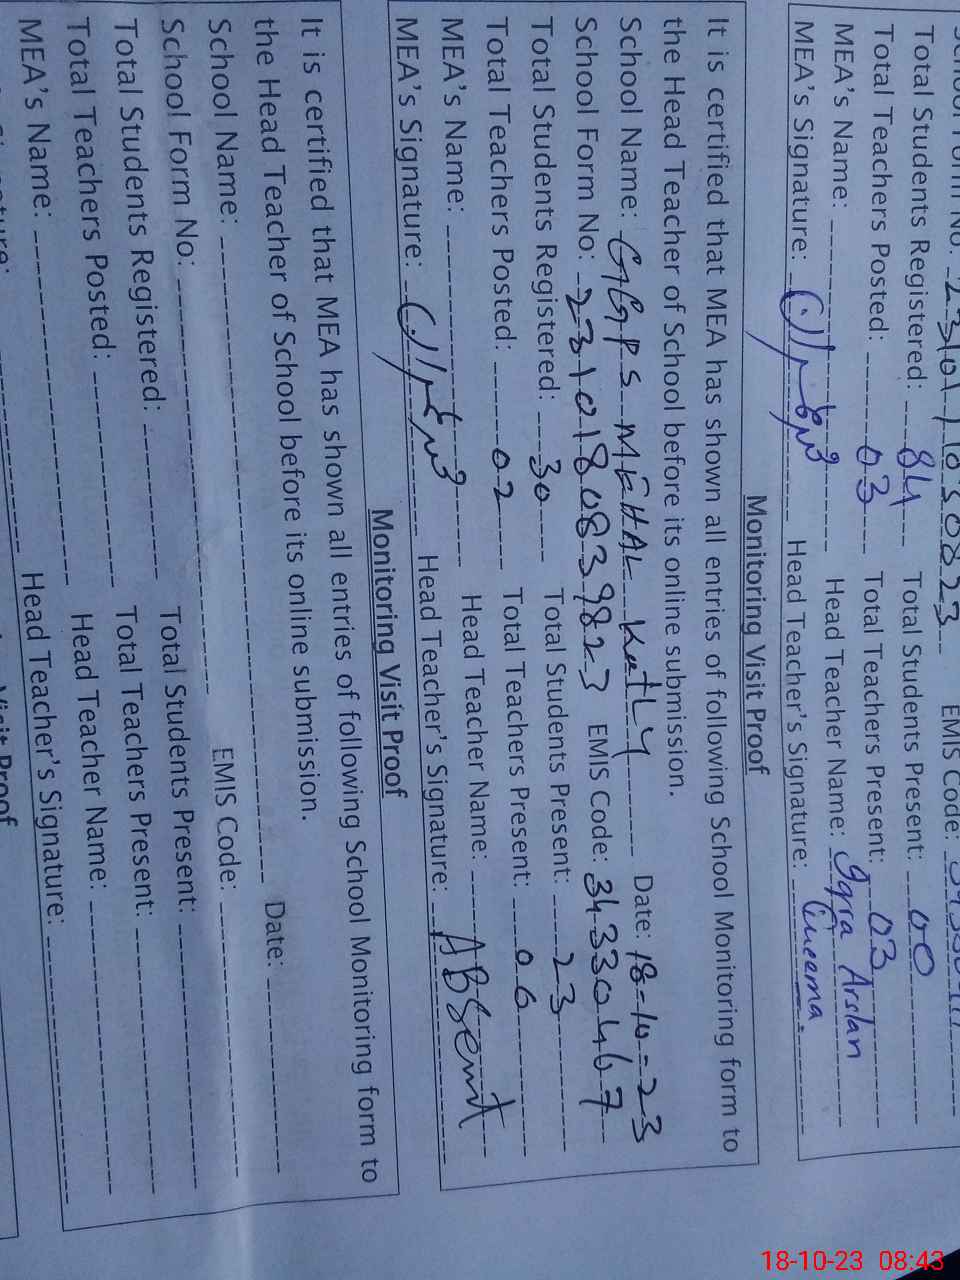 Total Students Registered: 84 Total Students Present: 00
Total Teachers Posted: 03 Total Teachers Present: 03
MEA's Name: Head Teacher Name: Iqra Arslan
MEA's Signature: Head Teacher's Signature:
Monitoring Visit Proof
It is certified that MEA has shown all entries of following School Monitoring form to
the Head Teacher of School before its online submission.
School Name: GGPS MEHAL Katly Date: 18-10-23
School Form No: 2310180839823 EMIS Code: 34330467
Total Students Registered: 30 Total Students Present: 23
Total Teachers Posted: 02 Total Teachers Present: 00
MEA's Name: Head Teacher Name: ABSent
MEA's Signature: Head Teacher's Signature:
Monitoring Visit Proof
It is certified that MEA has shown all entries of following School Monitoring form to
the Head Teacher of School before its online submission.
School Name: Date:
School Form No: EMIS Code:
Total Students Registered: Total Students Present:
Total Teachers Posted: Total Teachers Present:
MEA's Name: Head Teacher Name:
Head Teacher's Signature:
Visit Proof
18-10-23 08:43